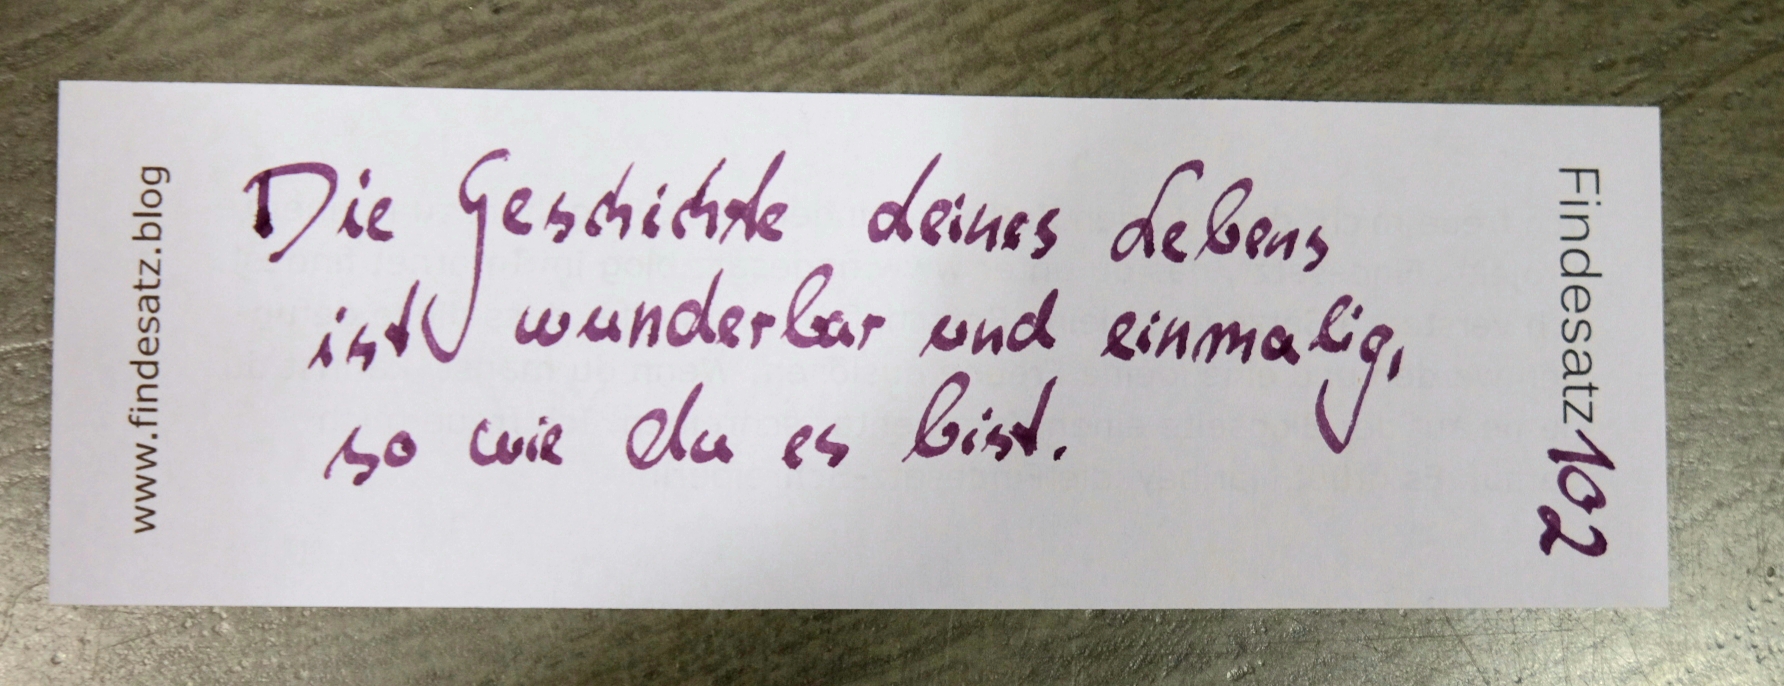 www.findesatz.blog
Die Geschichte deines Lebens
ist wunderbar und einmalig,
so wie du es bist.
Findesatz 102